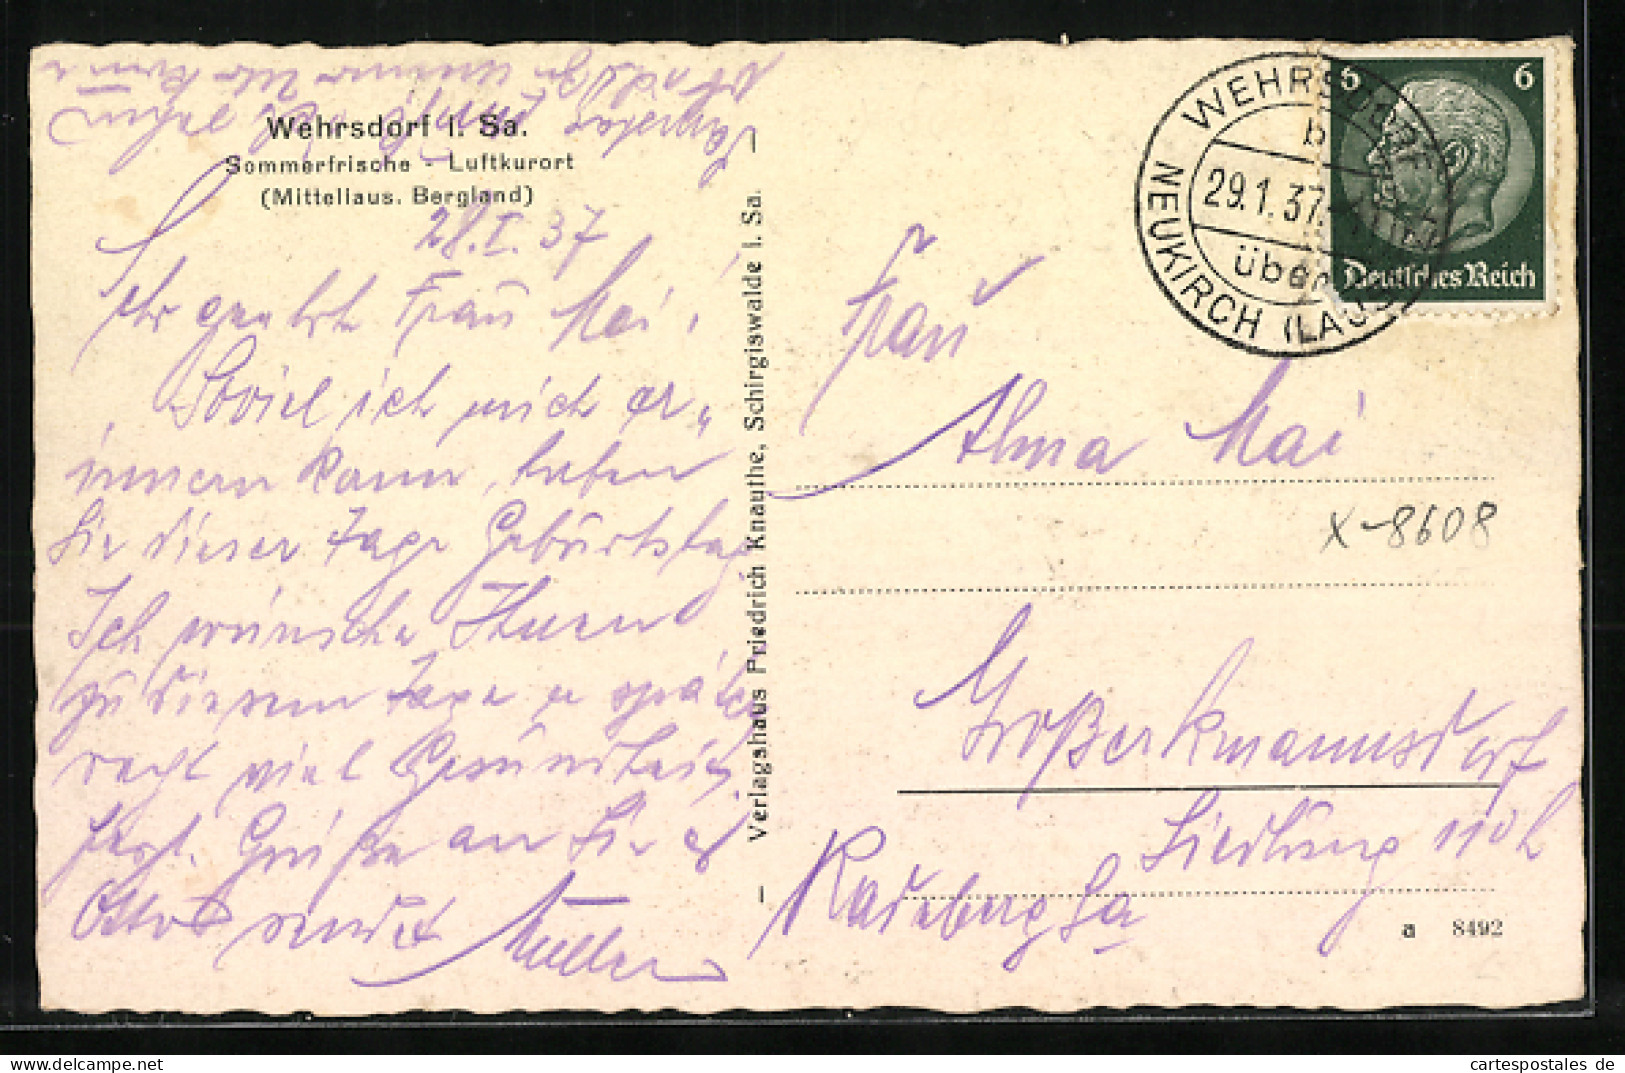 Wehrsdorf i. Sa.
Sommerfrische - Luftkurort
(Mittellaus. Bergland)
28.I.37
Sehr geehrte Frau Mai!
Soviel ich mich er„
innern kann, haben
Sie dieser Tage Geburtstag
Ich wünsche Ihnen
zu diesem Tage u später
recht viel Gesundheit.
Herzl. Grüße an Sie u
Otto sendet Müller
– Verlagshaus Friedrich Knauthe, Schirgiswalde i. Sa. –
WEHRSDORF
b
29.1.37
über
NEUKIRCH (LAUS
6 6
Deutsches Reich
Frau
Alma Mai
x-8608
Großerkmannsdorf
Siedlung 110 b
Radeberg Sa
a 8492
cartespostales de